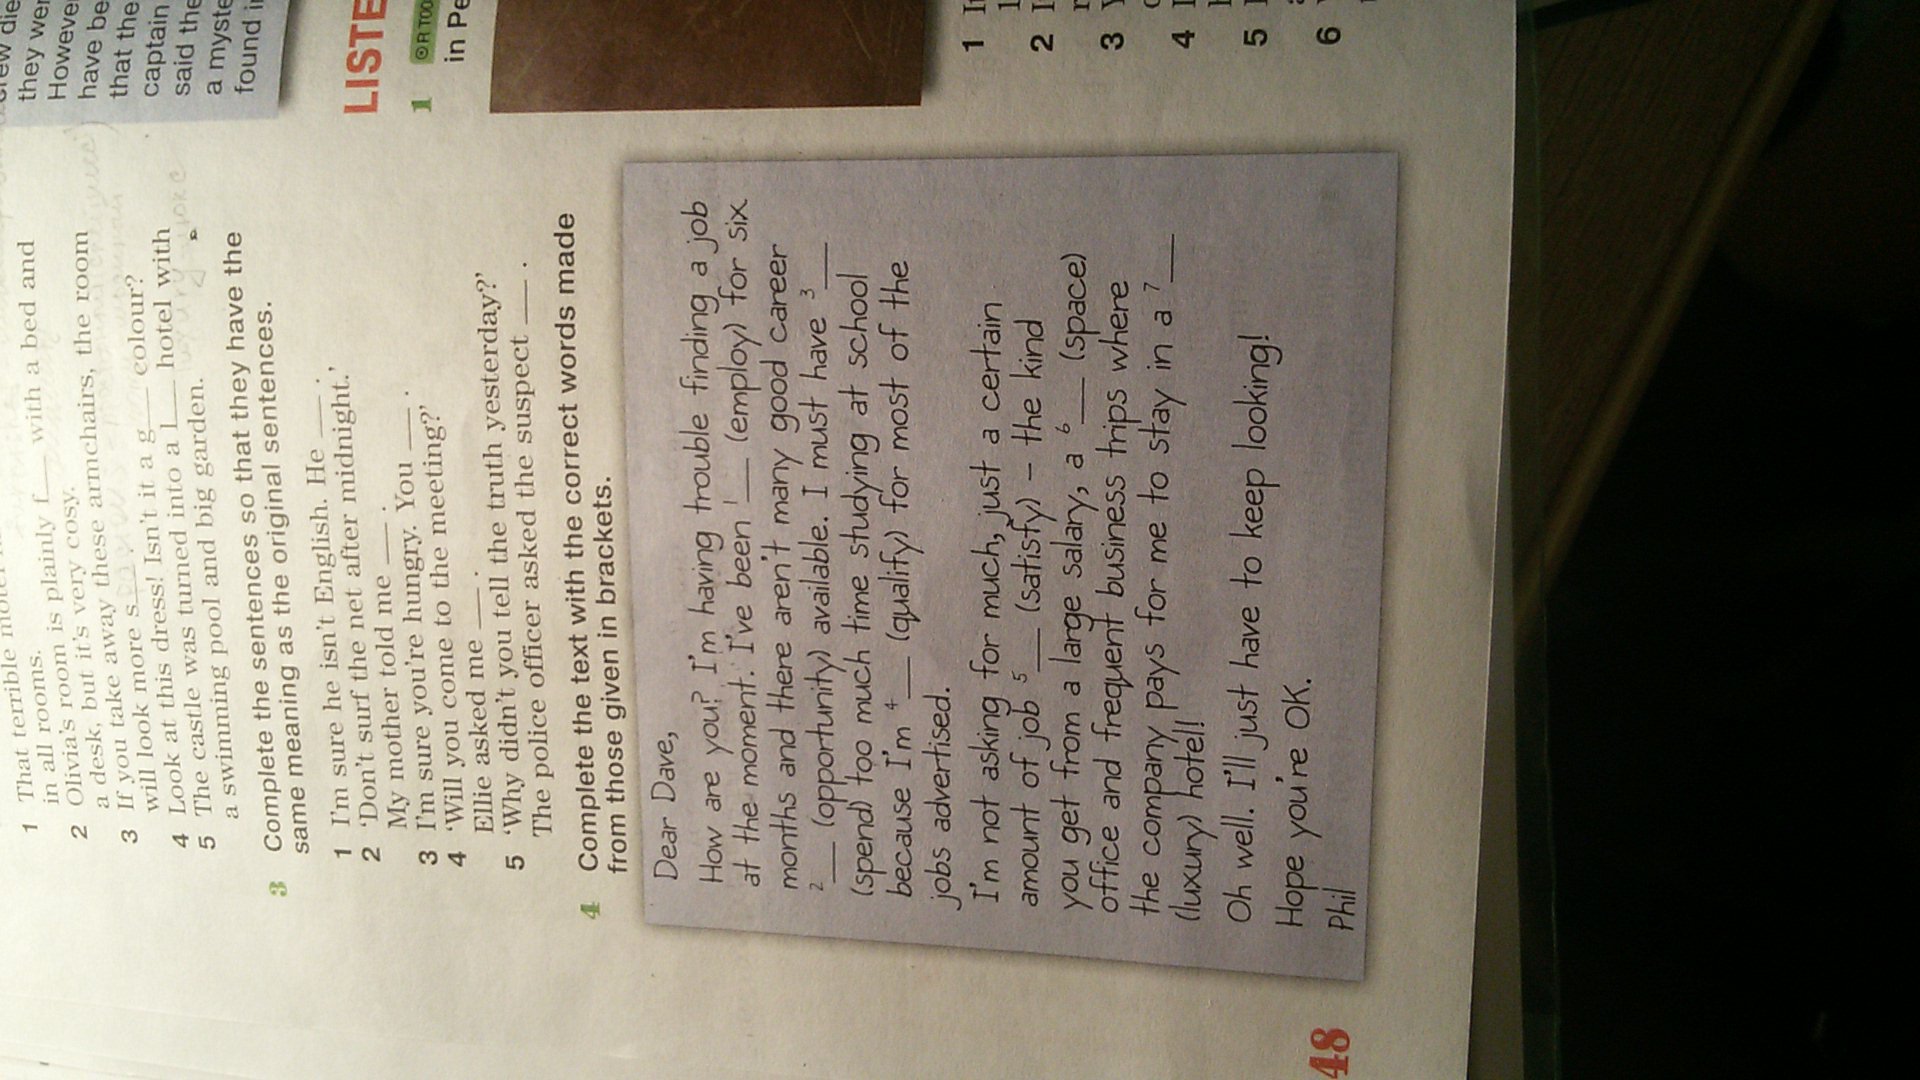 That terrible
1 in all rooms.
2 Olivia's room is plainly f___ with a bed and
a desk, but it's very cosy.
3 If you take away these armchairs, the room
will look more s___
4 Look at this dress! Isn't it a g___ colour?
5 The castle was turned into a l___ hotel with
a swimming pool and big garden.
3 Complete the sentences so that they have the
same meaning as the original sentences.
1 I'm sure he isn't English. He ___.
2 'Don't surf the net after midnight.'
My mother told me ___.
3 I'm sure you're hungry. You ___.
4 'Will you come to the meeting?'
Ellie asked me ___.
5 'Why didn't you tell the truth yesterday?'
The police officer asked the suspect ___.
4 Complete the text with the correct words made
from those given in brackets.
Dear Dave,
How are you? I'm having trouble finding a job
at the moment. I've been 1 ___ (employ) for six
months and there aren't many good career
2 ___ (opportunity) available. I must have 3 ___
(spend) too much time studying at school
because I'm 4 ___ (qualify) for most of the
jobs advertised.
I'm not asking for much, just a certain
amount of job 5 ___ (satisfy) – the kind
you get from a large salary, a 6 ___ (space)
office and frequent business trips where
the company pays for me to stay in a 7 ___
(luxury) hotel!
Oh well. I'll just have to keep looking!
Hope you're OK.
Phil
48
they wer
However
have be
that the
captain
said the
a myste
found i
LISTE
1 R TOO
in Pe
1
2
3
4
5
6